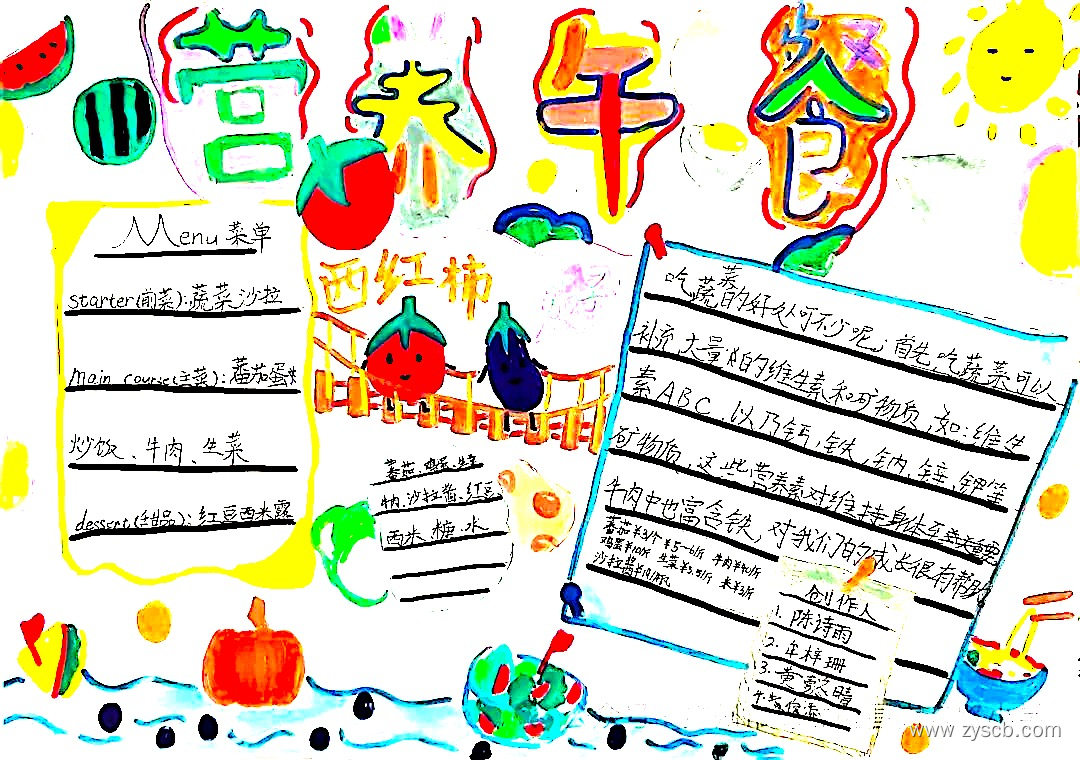 营养午餐
Menu 菜单
starter(前菜):蔬菜沙拉
main course(主菜):番茄蛋
炒饭、牛肉、生菜
dessert(甜品):红豆西米露
西红柿
番茄、鸡蛋、生菜
牛肉、沙拉酱、红豆
西米、糖、水
吃蔬菜的好处可不少呢,首先,吃蔬菜可以
补充大量的维生素和矿物质,如:维生
素ABC,以及钙,铁,钠,锌,钾等
矿物质,这些营养素对维持身体至关重要
牛肉中也富含铁,对我们的成长很有帮助
番茄¥3/个 ¥5-6/斤 牛肉¥40/斤
鸡蛋¥10/斤 生菜¥3.5/斤 米¥3/斤
沙拉酱¥10/瓶
创作人
1.陈诗雨
2.牟梓珊
3.黄
4.
www.zyscb.com